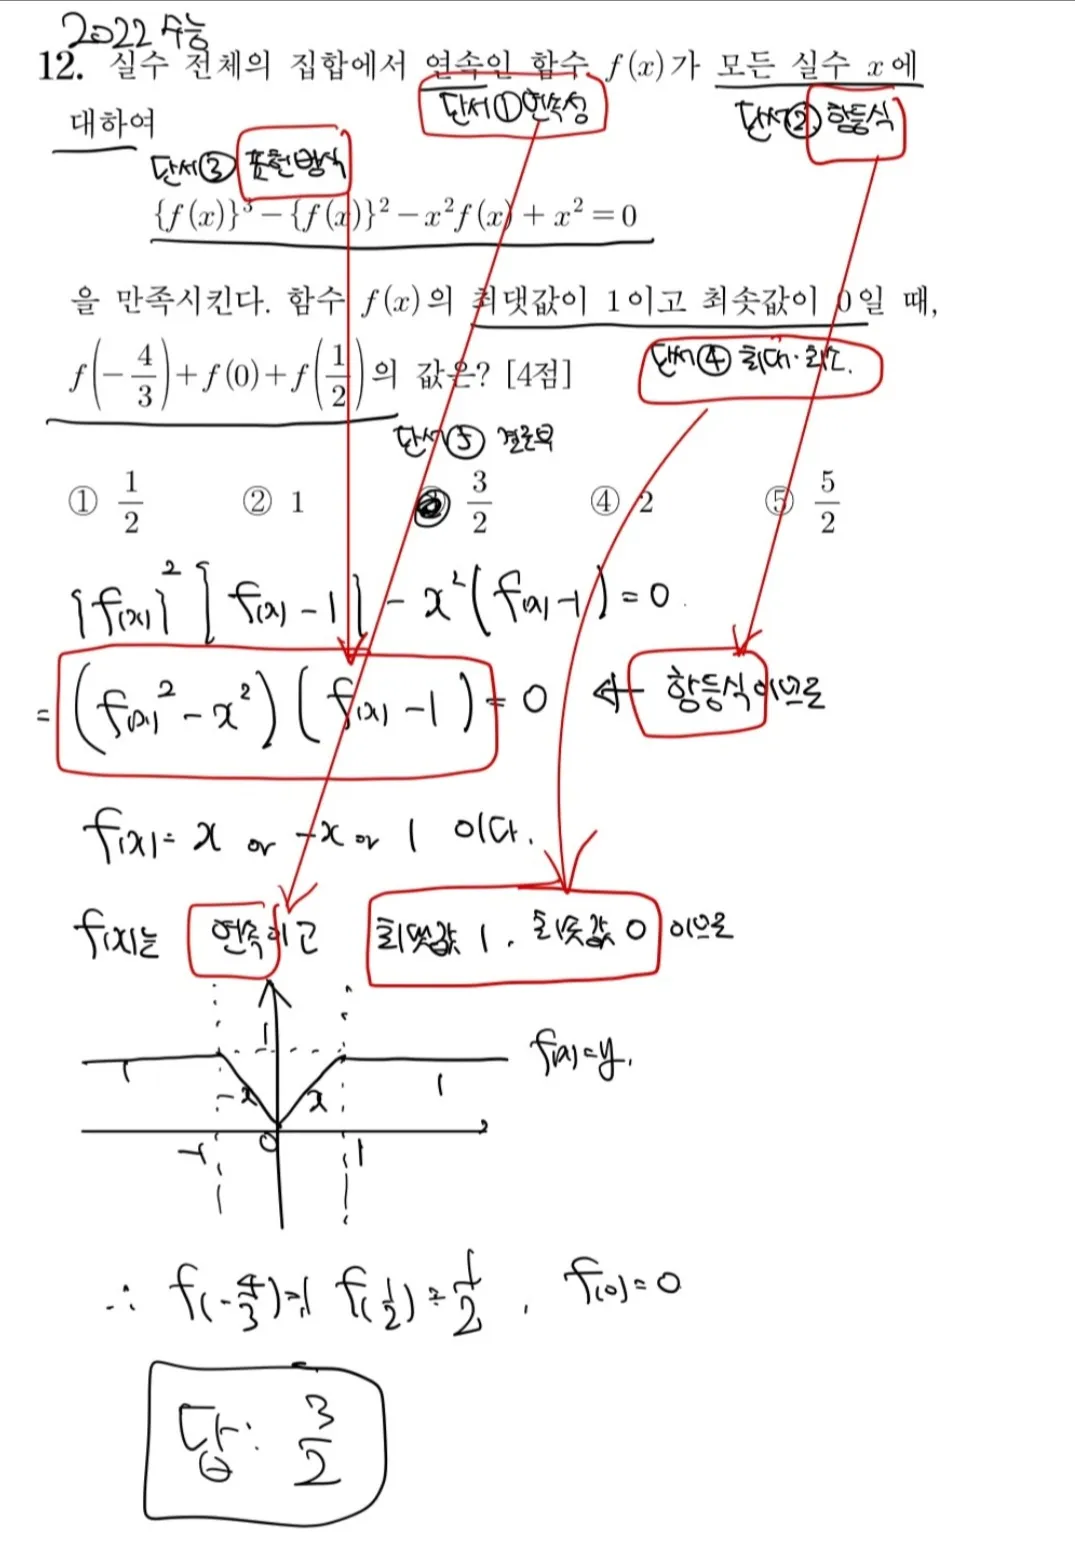 2022 수능
12. 실수 전체의 집합에서 연속인 함수 f(x)가 모든 실수 x에
단서① 연속성 단서② 항등식
대하여
단서③ 표현방식
{f(x)}³ − {f(x)}² − x²f(x) + x² = 0
을 만족시킨다. 함수 f(x)의 최댓값이 1이고 최솟값이 0일 때,
단서④ 최대·최소.
f(−4/3) + f(0) + f(1/2)의 값은? [4점]
단서⑤ 결론부
① 1/2 ② 1 ③ 3/2 ④ 2 ⑤ 5/2
{f(x)}² [f(x) − 1] − x²(f(x) − 1) = 0
= (f(x)² − x²)(f(x) − 1) = 0 ← 항등식이므로
f(x) = x or −x or 1 이다.
f(x)는 연속이고 최댓값 1, 최솟값 0 이므로
1
f(x) = y.
1 −x x 1
−1 0 1
∴ f(−4/3) = 1 f(1/2) = 1/2, f(0) = 0
답: 3/2